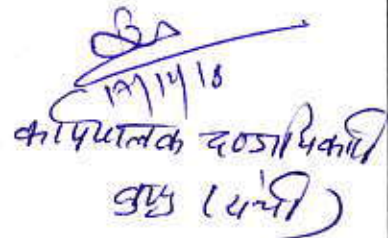 17/11/18
कार्यपालक दण्डाधिकारी
बुण्डू (राँची)